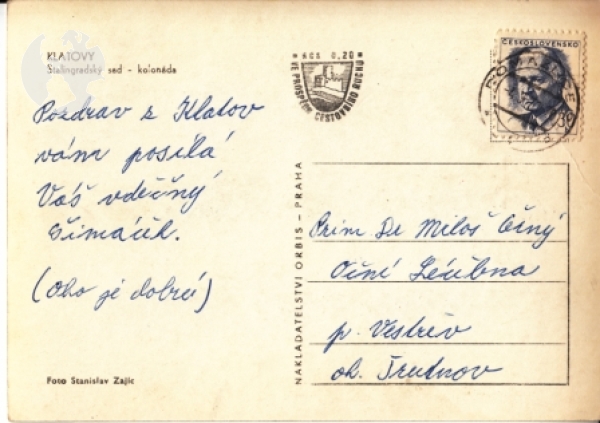 KLATOVY
Stalingradský sad - kolonáda
Pozdrav z Klatov
vám posílá
Váš vděčný
Šimáček.
(Oko je dobré)
Foto Stanislav Zajíc
NAKLADATELSTVÍ ORBIS - PRAHA
KČS 0,20
VE PROSPĚCH CESTOVNÍHO RUCHU
ČESKOSLOVENSKO
30
Prim Dr Miloš Činý
Oční Léčebna
p. Vestřev
ok. Trutnov